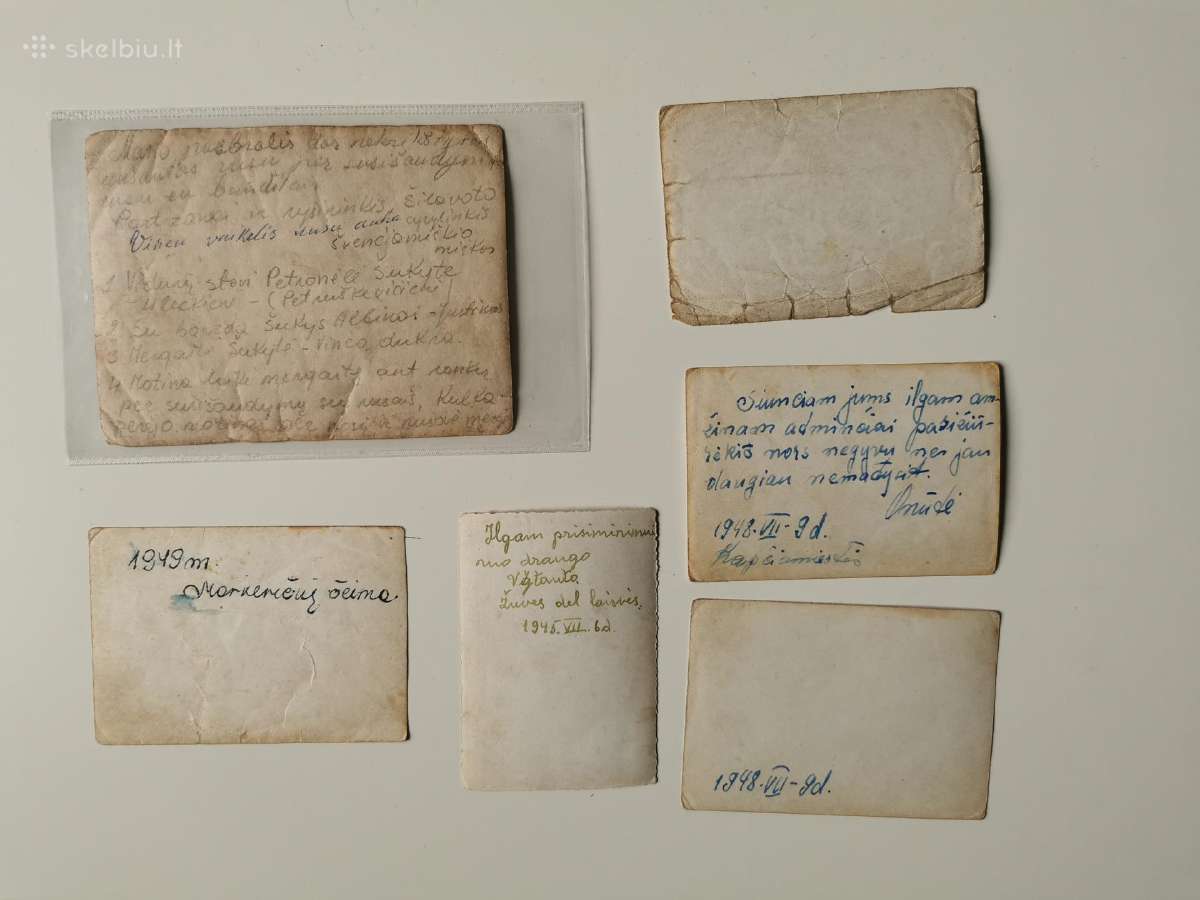 skelbiu.lt
Mano pusbrolis
rusų per susišaudymą
su banditais
Partizanai ir ryšininkės Šilavoto
Visen vaikelis rusu auka apylinkis
Švenčiamiškio
miškas
1 Vidurį stovi Petronėlė Šukyte
(Petruškevičienė)
2 Su barzda Šukys Albinas - Justinas
3 Mergaitė Šukytė - Vinco dukra.
4 Motina laiko mergaitę ant rankų
per susišaudymą su rusais, Kulka
perėjo motinai
Siunčiam jums ilgam am-
žinam adminčiai pasižiūr-
rėkit nors negyvu nes jau
daugian nematysit.
Onutė
1948-VII-9d.
Kapčiamiestis
1949 m.
Markeričių šeima.
Ilgam prisiminimui
nuo draugo
Vytauto
Žuves del laisvės.
1945.VII.6d.
1948-VII-9d.